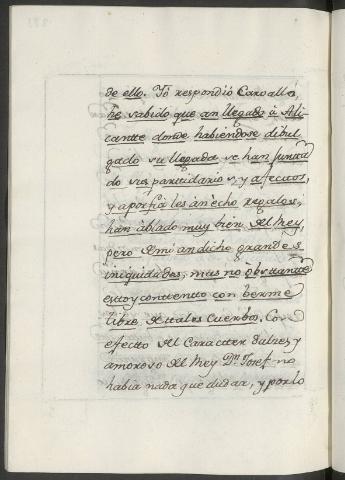 de ello. Yo respondió Caroallo,
he sabido que an llegado à Ali-
cantte donde habièndose dibul
gado su llegada se han funtta
do sus parttidarios, y afecttos,
y aporfia les an echo regalos,
han ablado muy bien del Rey,
pero de mi an dicho grandes
iniquidades, mas no obsttantte
esttoy conttentto con berme
libre de ttales Cuerbos. Con
efectto del Caractter dulze, y
amoroso del Rey Dn. Josef no
habia nada que dudar, y por lo